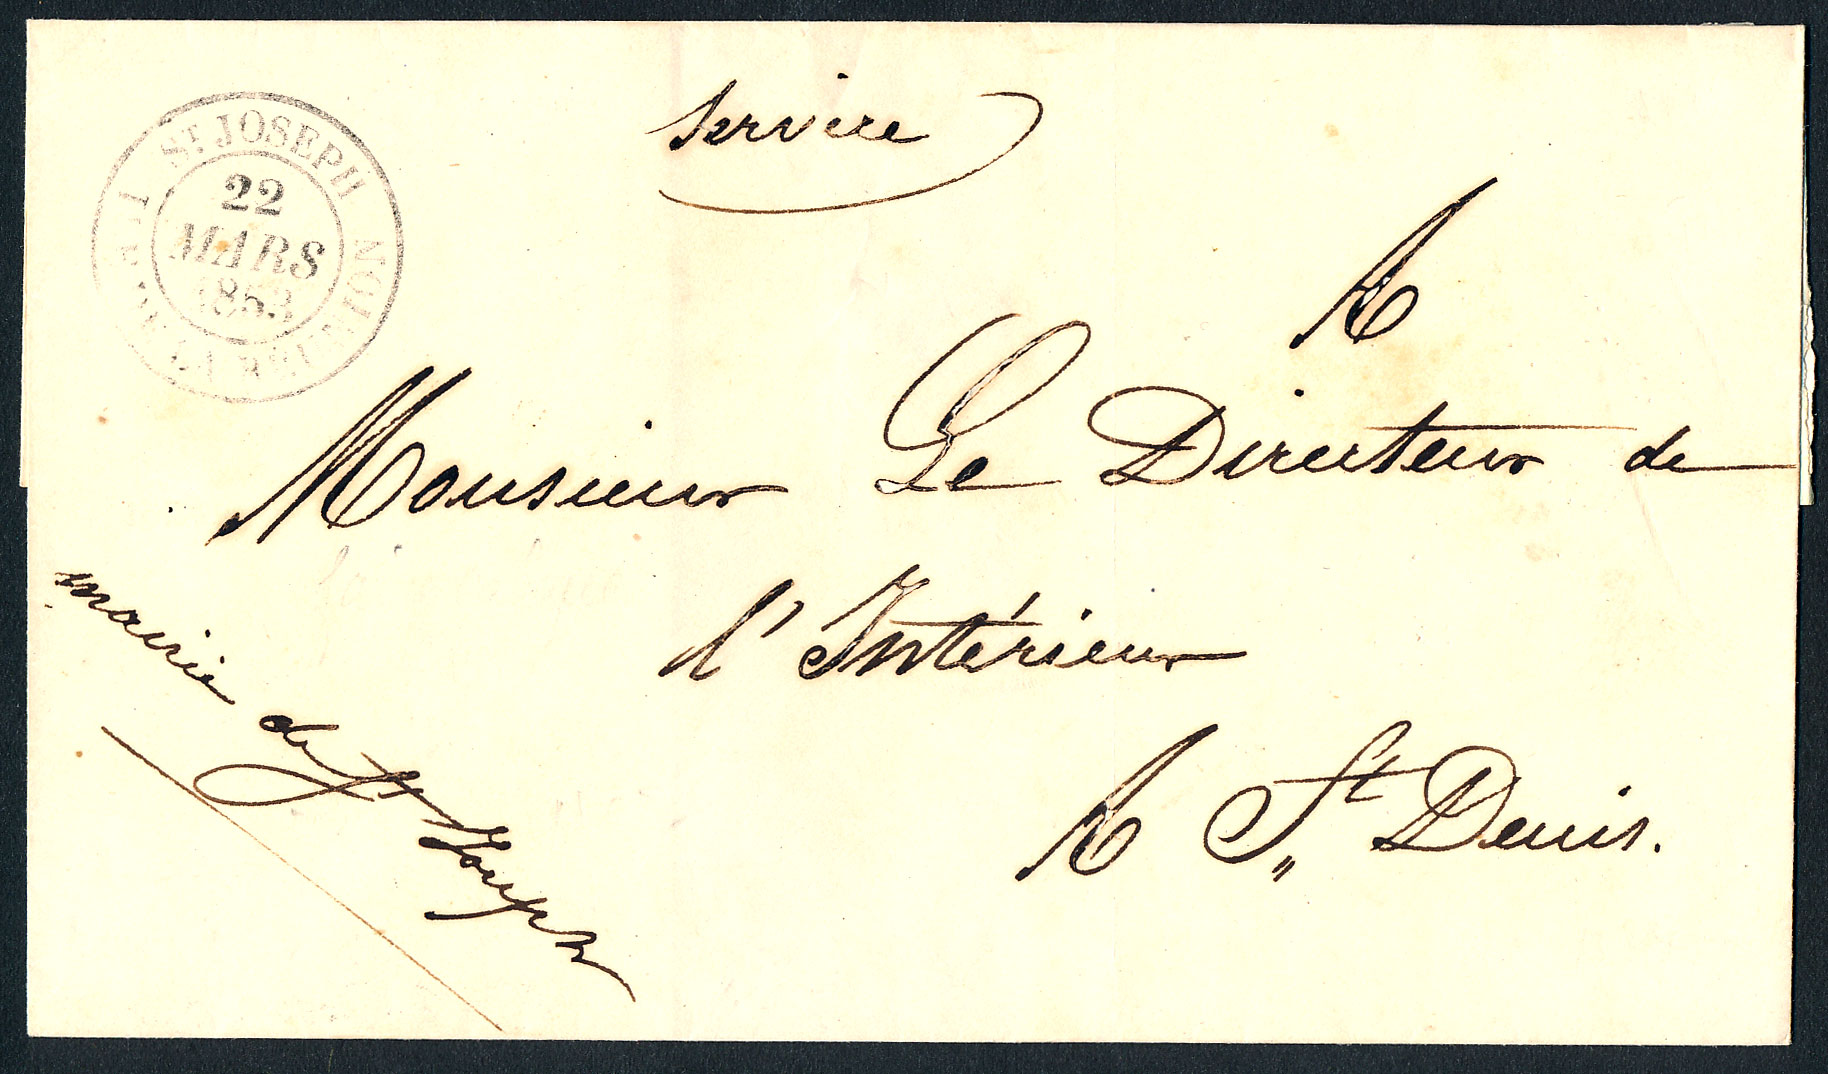 Service
St JOSEPH
22
MARS
1853
LA RÉUNION
A
Monsieur Le Directeur de
l'Intérieur
A St Denis.
mairie de St Joseph